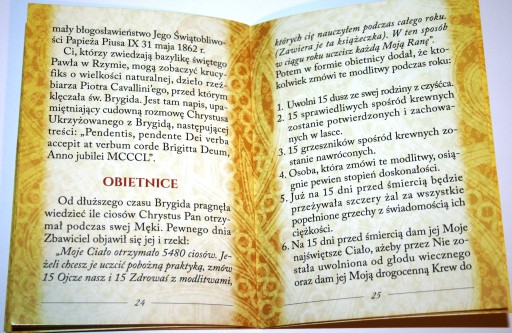 mały błogosławieństwo Jego Świątobliwo-
ści Papieża Piusa IX 31 maja 1862 r.
Ci, którzy zwiedzają bazylikę świętego
Pawła w Rzymie, mogą zobaczyć krucy-
fiks o wielkości naturalnej, dzieło rzeź-
biarza Piotra Cavallini'ego, przed którym
klęczała św. Brygida. Jest tam napis, upa-
miętniający cudowną rozmowę Chrystusa
Ukrzyżowanego z Brygidą, następującej
treści: „Pendentis, pendente Dei verba
accepit at verbum corde Brigitta Deum,
Anno jubilei MCCCL”.
OBIETNICE
Od dłuższego czasu Brygida pragnęła
wiedzieć ile ciosów Chrystus Pan otrzy-
mał podczas swej Męki. Pewnego dnia
Zbawiciel objawił się jej i rzekł:
„Moje Ciało otrzymało 5480 ciosów. Je-
żeli chcesz je uczcić pobożną praktyką, zmów
15 Ojcze nasz i 15 Zdrowaś z modlitwami,
24
których cię nauczyłem podczas całego roku.
(Zawiera je ta książeczka). W ten sposób
w ciągu roku uczcisz każdą Moją Ranę”.
Potem w formie obietnicy dodał, że kto-
kolwiek zmówi te modlitwy podczas roku:
1. Uwolni 15 dusz ze swej rodziny z czyśćca.
2. 15 sprawiedliwych spośród krewnych
zostanie potwierdzonych i zachowa-
nych w łasce.
3. 15 grzeszników spośród krewnych zo-
stanie nawróconych.
4. Osoba, która zmówi te modlitwy, osią-
gnie pewien stopień doskonałości.
5. Już na 15 dni przed śmiercią będzie
przeżywała szczery żal za wszystkie
popełnione grzechy z świadomością ich
ciężkości.
6. Na 15 dni przed śmiercią dam jej Moje
najświętsze Ciało, ażeby przez Nie zo-
stała uwolniona od głodu wiecznego
oraz dam jej Moją drogocenną Krew do
25